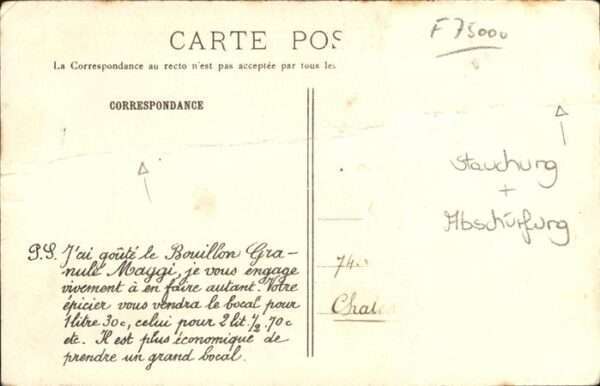 CARTE POS
F 75000
La Correspondance au recto n'est pas acceptée par tous les
CORRESPONDANCE
Stauchung
+
Abschürfung
P.S. J'ai goûté le Bouillon Gra-
nulé Maggi, je vous engage
vivement à en faire autant. Votre
épicier vous vendra le bocal pour
1 litre 30c, celui pour 2 lit. 1/2 .70c
etc. Il est plus économique de
prendre un grand bocal.
74
Chale